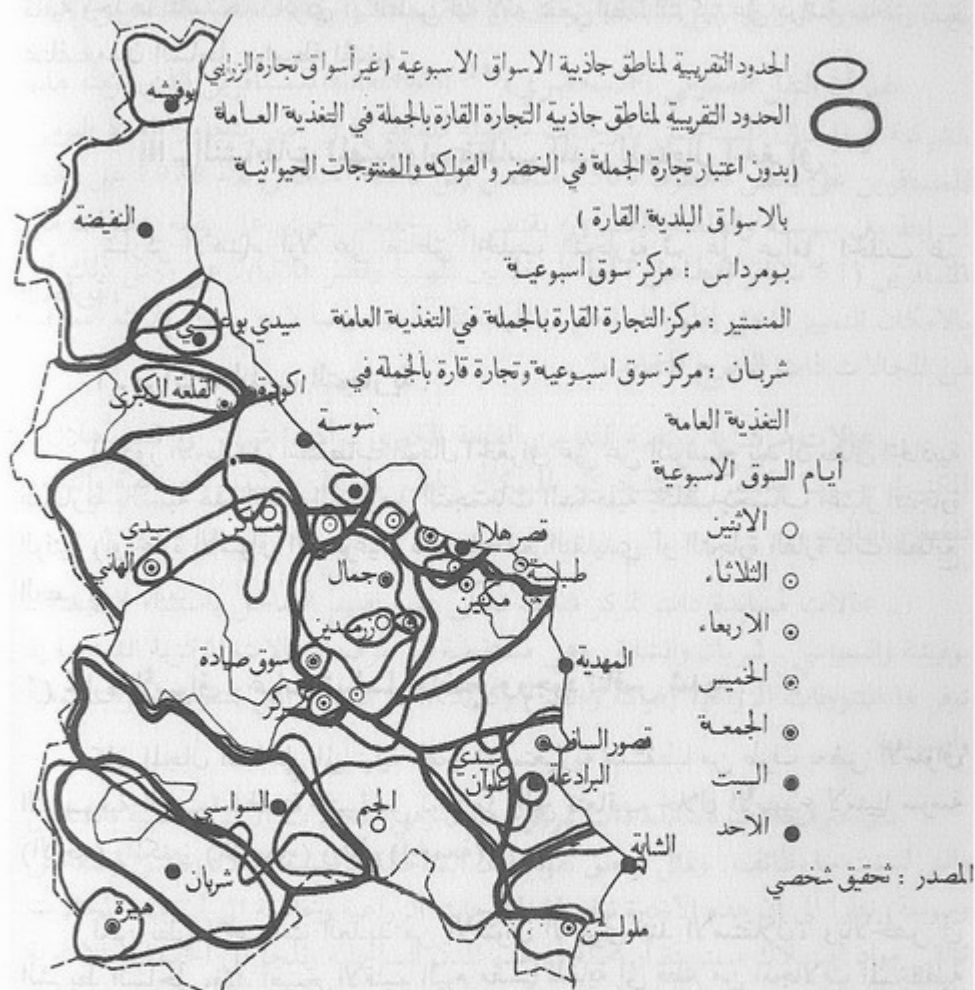 الحدود التقريبية لمناطق جاذبية الاسواق الاسبوعية (غير اسواق تجارة الزربي)
الحدود التقريبية لمناطق جاذبية التجارة القارة بالجملة في التغذية العامة
(بدون اعتبار تجارة الجملة في الخضر والفواكه والمنتوجات الحيوانية
بالاسواق البلدية القارة )
بومرداس : مركز سوق اسبوعية
المنستير : مركز التجارة القارة بالجملة في التغذية العامة
شربان : مركز سوق اسبوعية وتجارة قارة بالجملة في
التغذية العامة
ايام السوق الاسبوعية
الاثنين
الثلاثاء
الاربعاء
الخميس
الجمعة
السبت
الاحد
المصدر : تحقيق شخصي
بوفيشه
النفيضة
سيدي بوعلي
القلعة الكبرى
اكودة
سوسة
مساكن
سيدي
الهاني
قصر هلال
طبلبة
مكنين
جمال
زرمدين
سوق صيادة
المهدية
قصور الساف
سيدي
علوان
البرادعة
السواسي
الجم
الشابة
شربان
هبيرة
ملولش